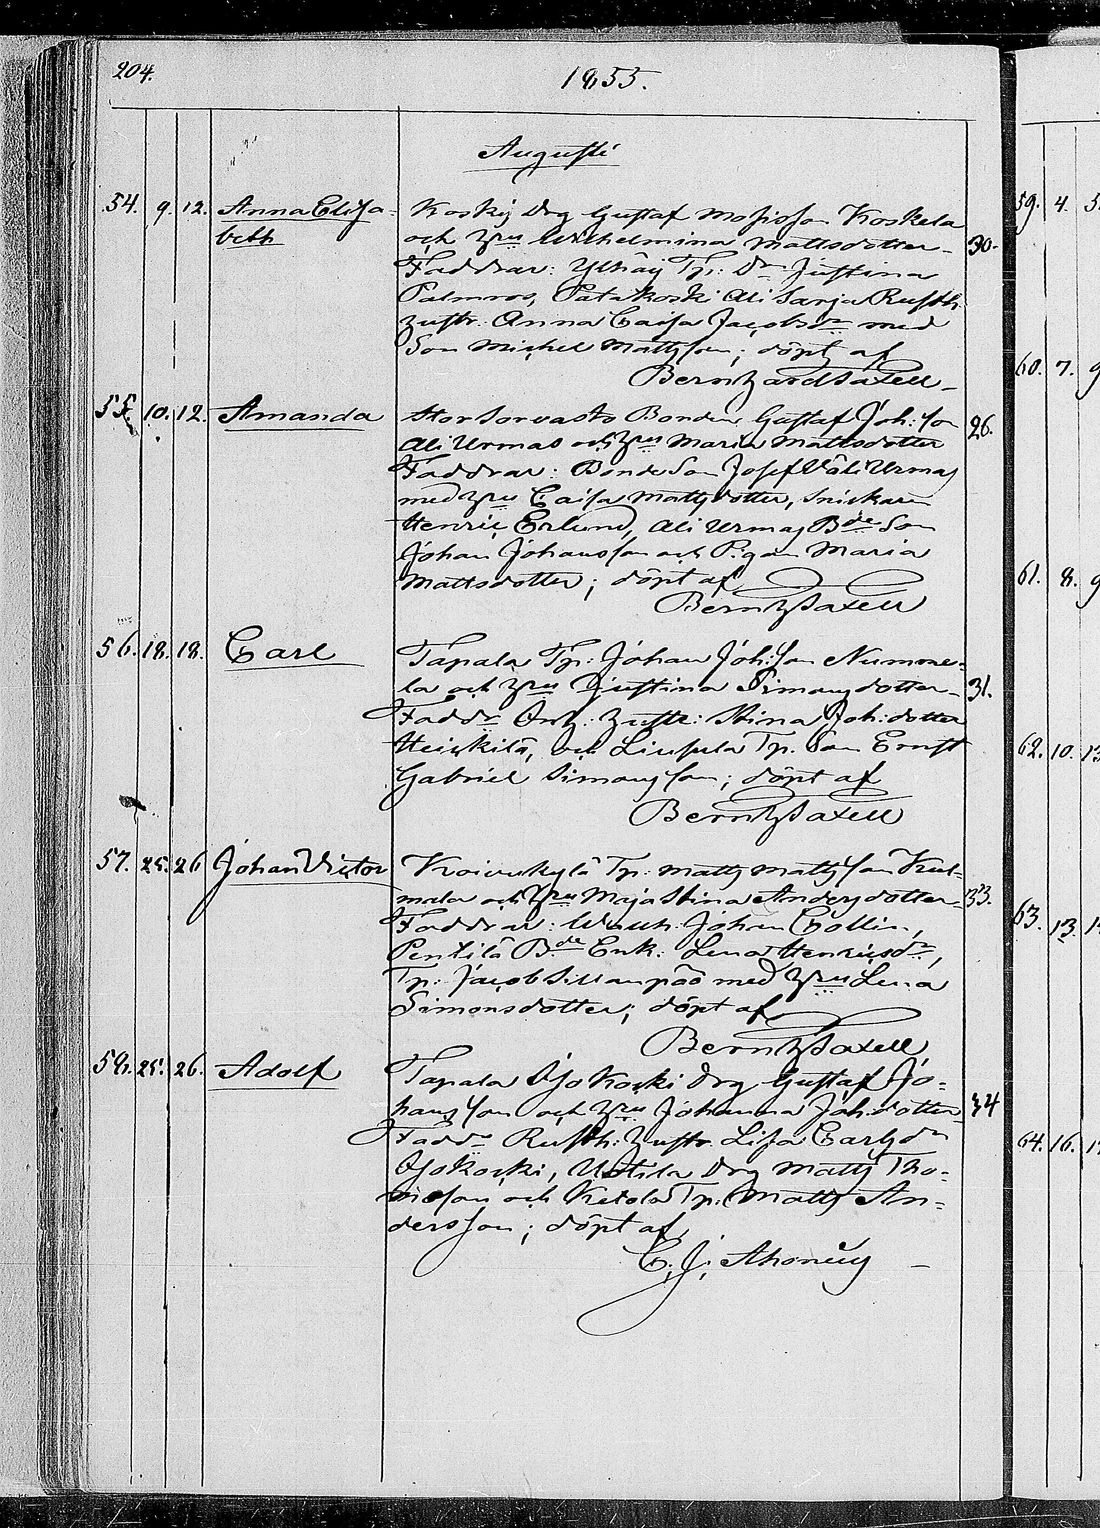 204.
1855.
Augusti
54. 9. 12. Anna Elisa- Koskis Drg Gustaf Mosisson Koskela
beth och Hru Wilhelmina Mattsdotter 30.
Faddrar: Tp: Dr Justina
Palmros, Patakoski Ali Rusth.
hustr. Anna Caisa Jacobsdr med
Son Michel Mattsson; döpt af
Berntz ardsaxell
55. 10. 12. Amanda Stor Sorvasto Bonden Gustaf Joh:son 26.
Ali Urmas och Hru Maria Mattsdotter
Faddrar: Bonde Son Josef Väli Urmas
med Hru Caisa Mattsdotter, Snickare
Henric Erlund, Ali Urmas Bde Son
Johan Johansson och Pigan Maria
Mattsdotter; döpt af
Berntz Saxell
56. 18. 18. Carl Tapala Tp: Johan Joh:son Numme-
la och Hru Justina Simonsdotter 31.
Faddr hustr: Stina Joh:dotter
Heickilä, och Liupula Tp. Son Ernst
Gabriel Simonsson; döpt af
Berntz Saxell
57. 25. 26 Johan Victor Koivukylä Tp: Matts Mattsson Kul-
mala och Hru Maja Stina Andersdotter 33.
Faddrar: Johan Collin,
Pentilä Bde Enk: Lena Henricsdr,
Tp: Jacob Sillanpää med Hru Lena
Simonsdotter; döpt af
Berntz Saxell
58. 25. 26. Adolf Tapala Ojakoski Drg Gustaf Jo-
hansson och Hru Johanna Joh:dotter 34
Faddr Rusth: hustr. Lisa Carlsdr
Ojakoski, Uotila Drg Matts Tho-
masson och Ketola Tp: Matts An-
dersson; döpt af
C. J. Ahonius
59. 4. 5.
60. 7. 9
61. 8. 9
62. 10. 13
63. 13.
64. 16.